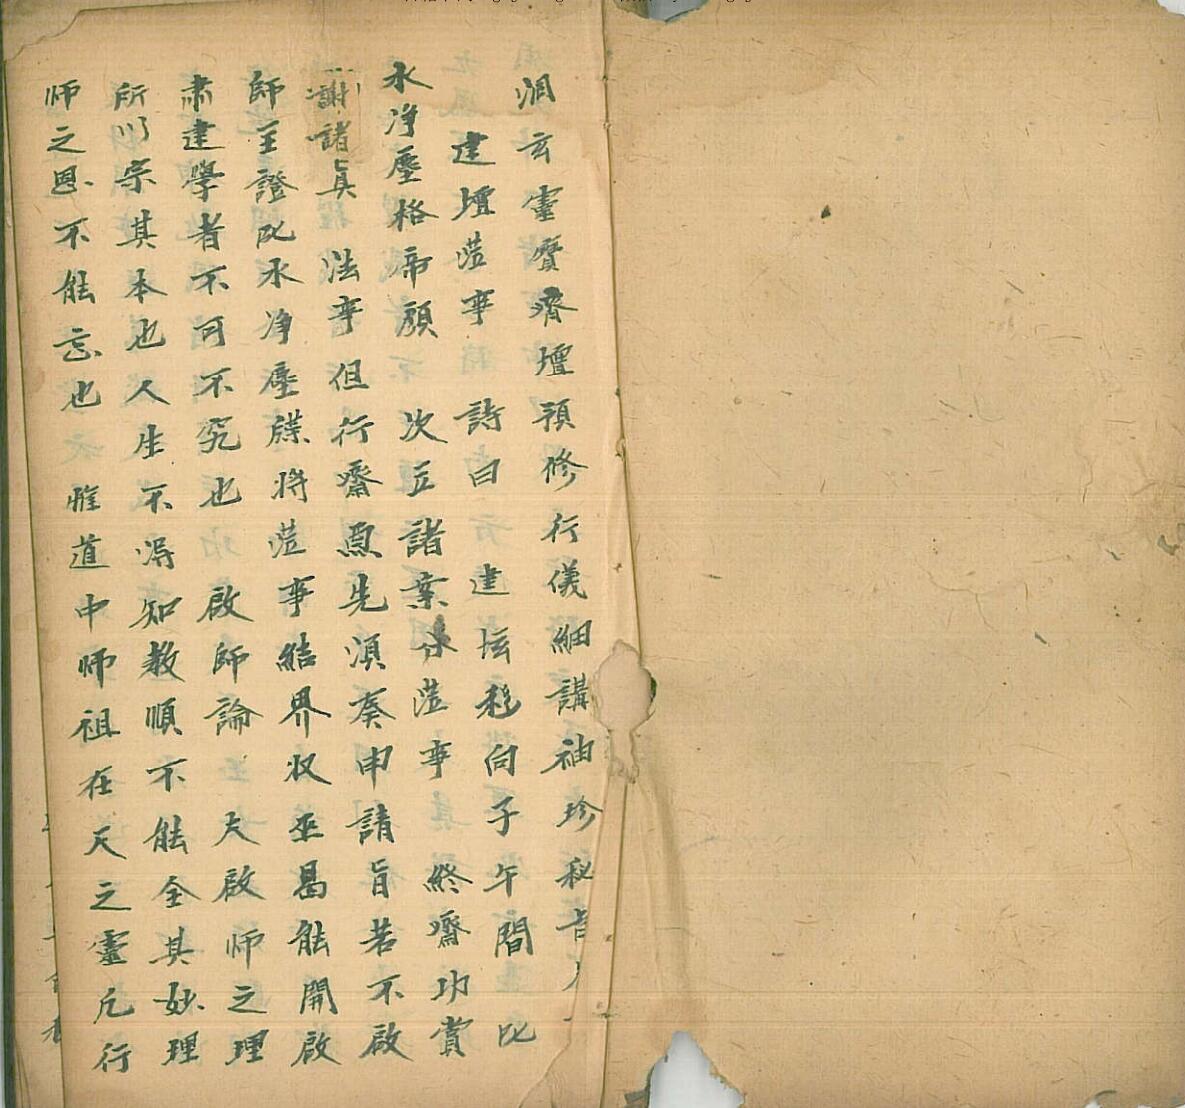 洞玄靈寶齋壇預修行儀細講袖珍秘旨
建壇蒞事 詩曰 建坛稳向子午間 以
水净壓格帝顔 次立諸案 蒞事終齋功賞
謝諸真 法事但行齋 先湏奏申請旨若不啟
師主證以水净壓牒將蒞事結界收巫曷能開啟
肃建學者不可不究也 啟師論 夫啟师之理
所以宗其本也人生不得知教順不能全其妙理
师之恩不能忘也 惟道中师祖在天之靈凡行